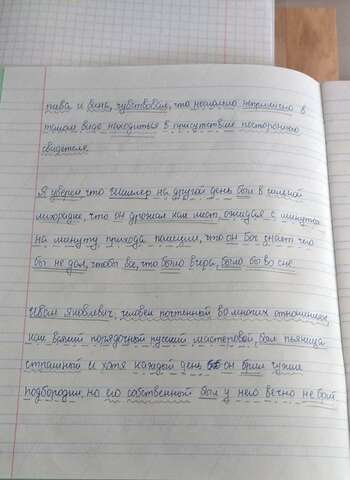 пива и вина, чувствовал, что несколько неприлично в
таком виде находиться в присутствии постороннего
свидетеля.
Я уверен что Шиллер на другой день был в сильной
лихорадке, что он дрожал как лист, ожидая с минуты
на минуту прихода полиции, что он Бог знает что
бы не дал, чтобы все, что было вчера, было бы во сне.
Иван Яковлевич, человек почтенный во многих отношениях,
как всякий порядочный русский мастеровой, был пьяница
страшный и хотя каждый день он брил чужие
подбородки, но его собственный был у него вечно не брит.